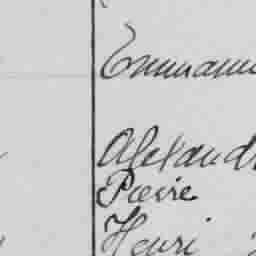 Emmanu
Alexand
Pierre
Henri